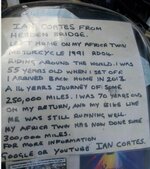 IAN COATES FROM
HEBDEN BRIDGE.
LEFT HOME ON MY AFRICA TWIN
MOTORCYCLE 1991 RD04.
RIDING AROUND THE WORLD. I WAS
55 YEARS OLD WHEN I SET OFF
I ARRIVED BACK HOME IN 2013
A 14 YEARS JOURNEY OF SOME
250,000 MILES. I WAS 70 YEARS OLD
ON MY RETURN, AND MY BIKE LIKE
ME WAS STILL RUNNING WELL
MY AFRICA TWIN HAS NOW DONE SOME
300,000 MILES.
FOR MORE INFORMATION
GOOGLE OR YOUTUBE IAN COATES.